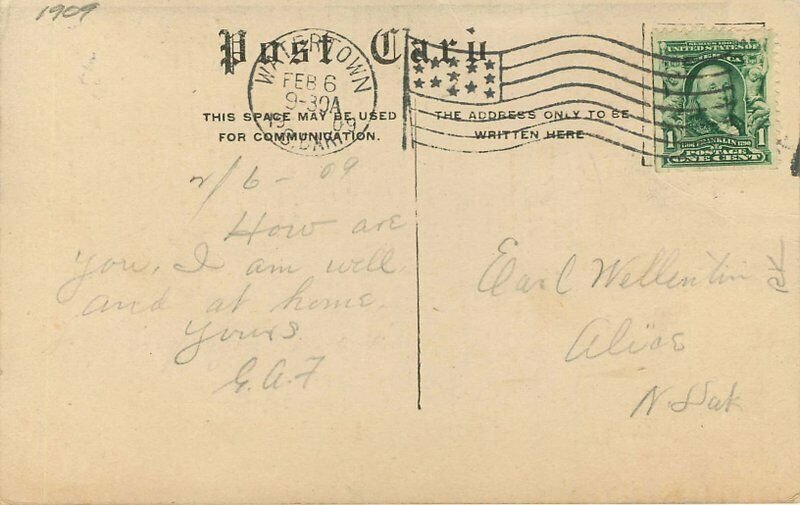 1909
Post Card
WATERTOWN
FEB 6
9-30A
1909
S.DAK.
THIS SPACE MAY BE USED
FOR COMMUNICATION.
THE ADDRESS ONLY TO BE
WRITTEN HERE
SERIES 1902
UNITED STATES OF
1 1
1706 FRANKLIN 1790
POSTAGE
ONE CENT
2/6-09
How are
you. I am well
and at home.
Yours
G.A.F
Earl Wellentin
Alice
N. Dak